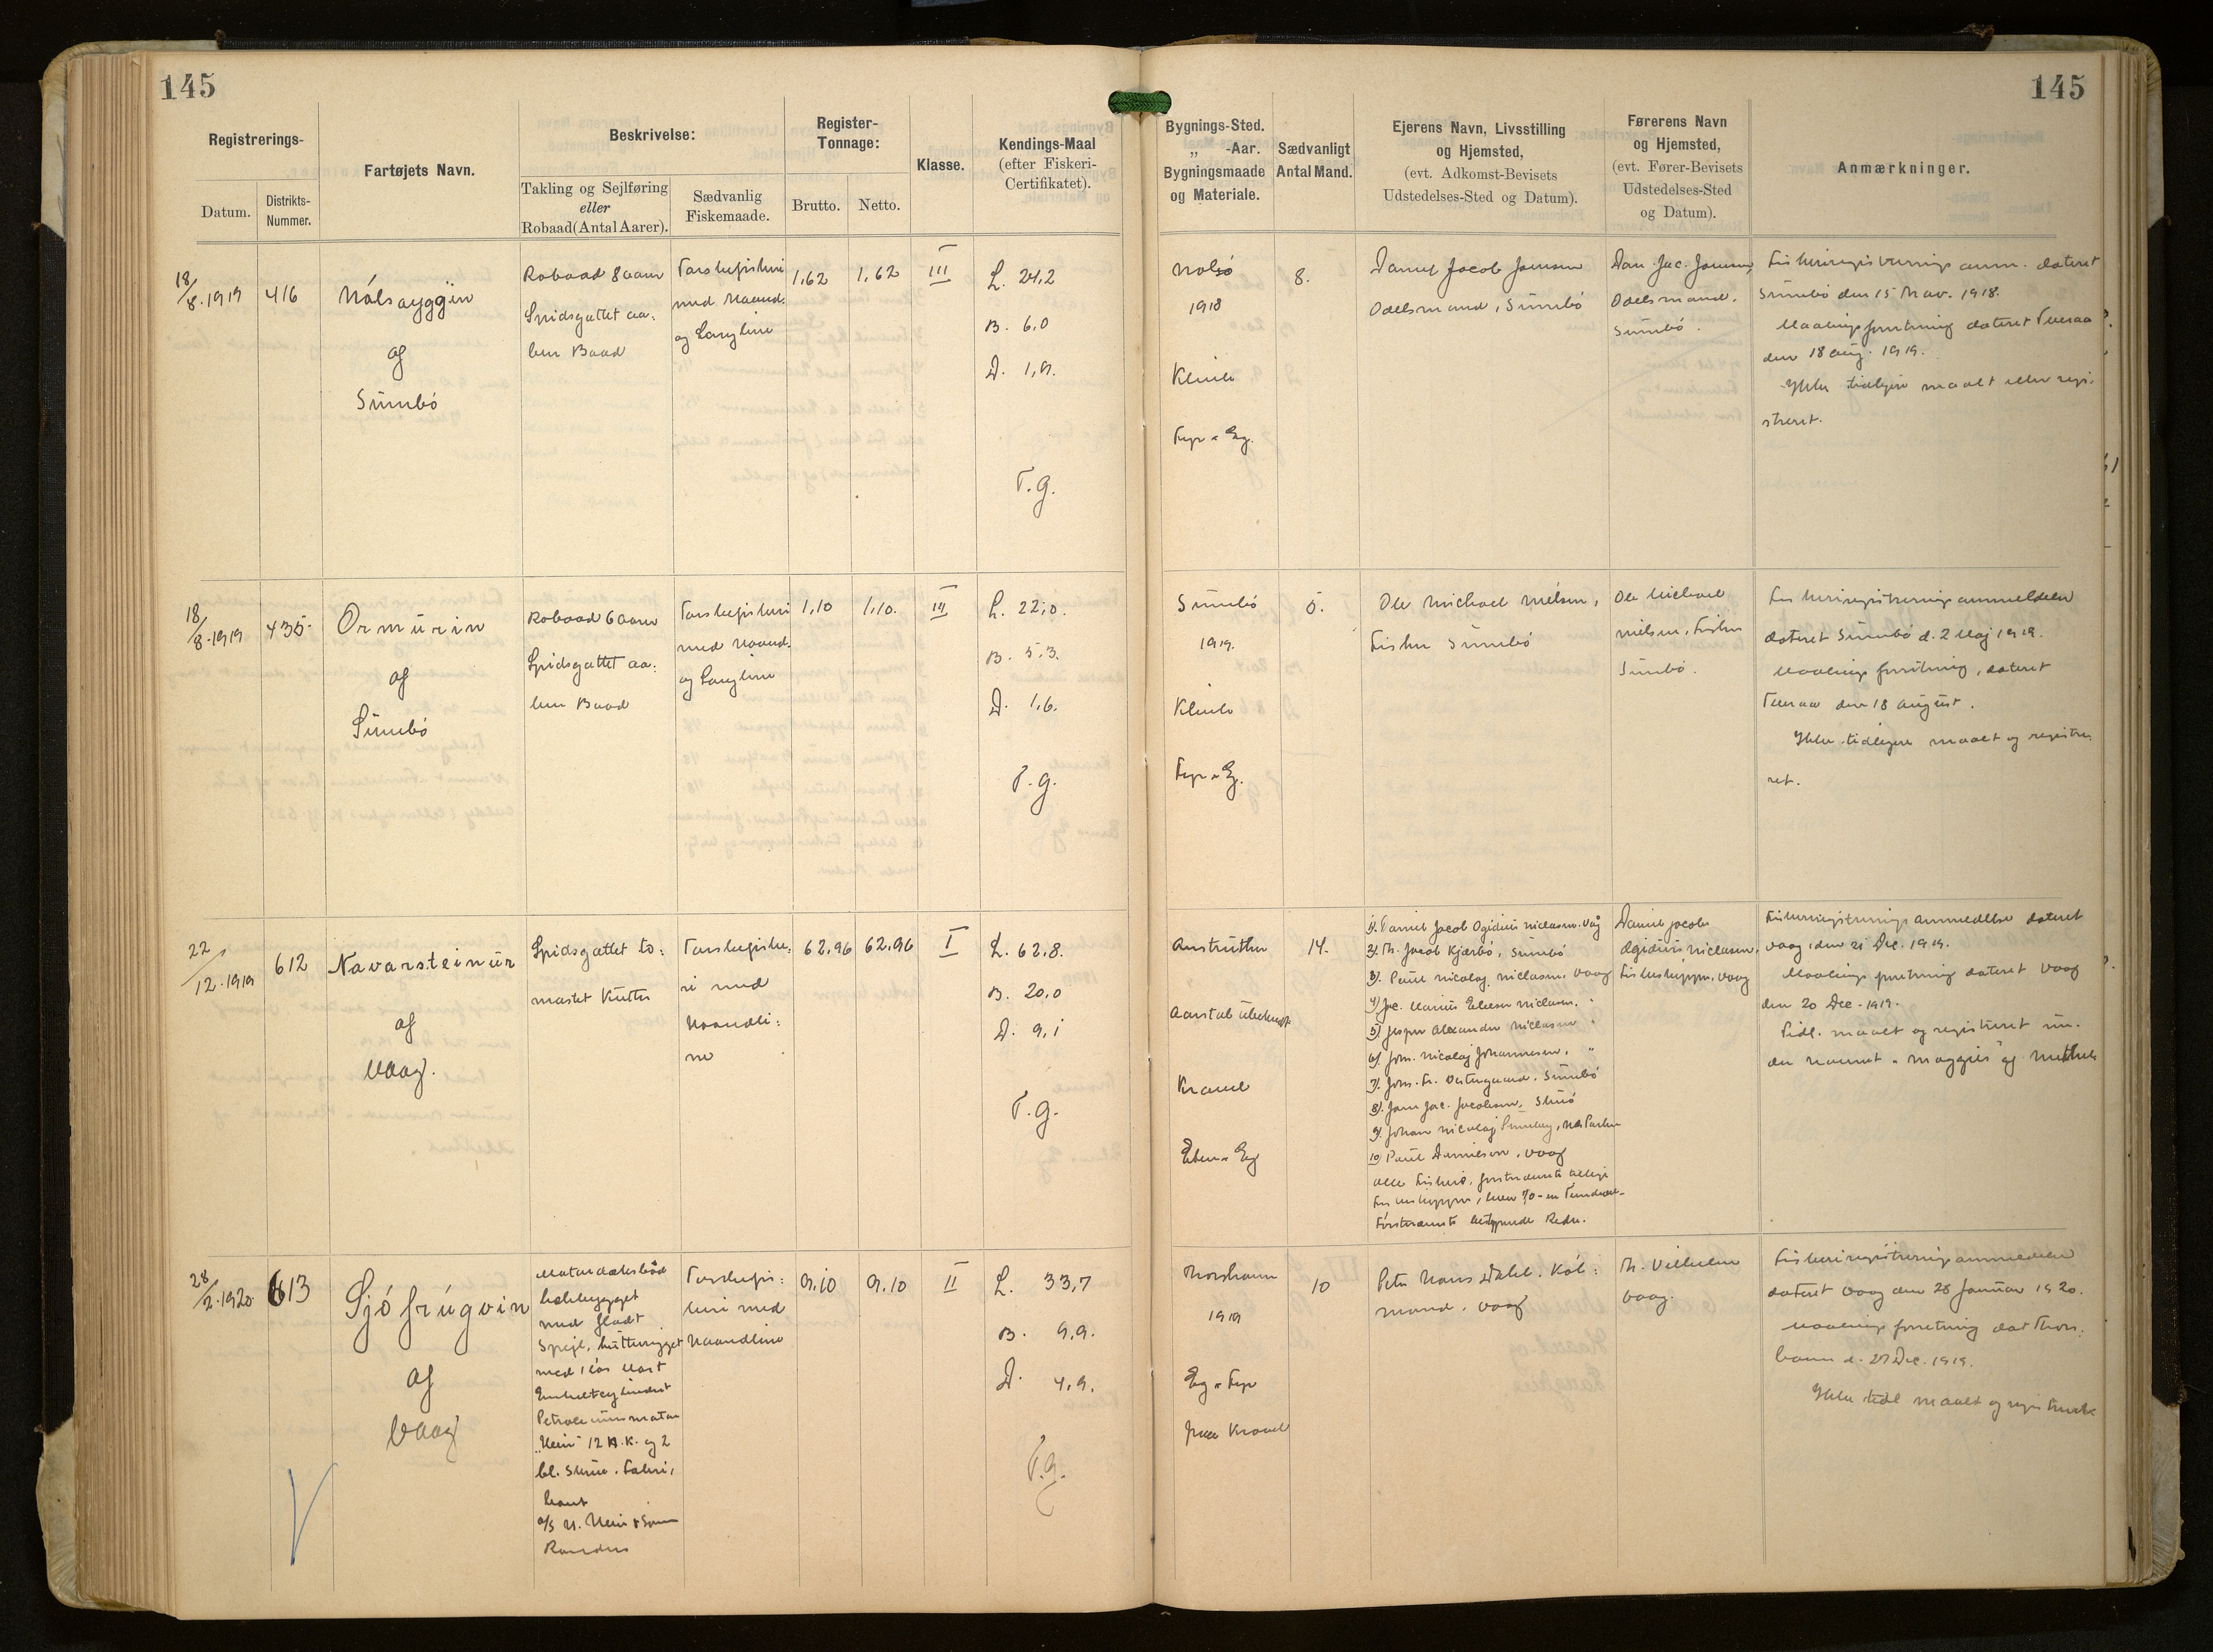 145
145
Registrerings-
Datum.
Distrikts-
Nummer.
Fartøjets Navn.
Beskrivelse:
Takling og Sejlføring
eller
Robaad (Antal Aarer).
Sædvanlig
Fiskemaade.
Register-
Tonnage:
Brutto.
Netto.
Klasse.
Kendings-Maal
(efter Fiskeri-
Certifikatet).
Bygnings-Sted.
„ -Aar.
Bygningsmaade
og Materiale.
Sædvanligt
Antal Mand.
Ejerens Navn, Livsstilling
og Hjemsted,
(evt. Adkomst-Bevisets
Udstedelses-Sted og Datum).
Førerens Navn
og Hjemsted,
(evt. Fører-Bevisets
Udstedelses-Sted
og Datum).
Anmærkninger.
18/8.1919
416
Nólsoyggjin
af
Sumbó
Robaad 8 aarer
Spidsgattet aa:
ben Baad
Torskefiskeri
med Haand.
og Langline
1,62
1,62
III
L. 24,2
B. 6,0
D. 1,9.
T.G.
Nolsó
1918
Klink
Fyr & Eg.
8.
Daniel Jacob Joensen
Odelsmand, Sumbó
Dan. Jac. Joensen,
Odelsmand.
Sumbó.
dateret
Sumbó den 15 Nov. 1918.
Maalingsforretning dateret Tveraa
den 18 aug. 1919.
Ikke tidligere maalt eller regi.
streret.
18/8.1919
435
Ormurin
af
Sumbó
Robaad 6 aarer
Spidsgattet aa:
ben Baad
Torskefiskeri
med Haand.
og Langline
1,10
1,10.
III
L. 22,0.
B. 5,3.
D. 1,6.
T.G.
Sumbó
1919.
Klink
Fyr & Eg.
5.
Ole Michael Nielsen,
Fisker Sumbó
Ole Michael
Nielsen, Fisker
Sumbó.
Fiskeriregistreringsanmeldelse
dateret Sumbó d. 2 Maj 1919.
Maalingsforretning, dateret
Tveraa den 18 August.
Ikke tidligere maalt og registre.
ret.
22/12.1919
612
Navarsteinur
af
Vaag.
Spidsgattet to:
mastet Kutter
Torskefiske:
ri med
Haandli:
ne
62,96
62,96
I
L. 62,8.
B. 20,0
D. 9,1
T.G.
Anstruther
Aarstal ubekendt
Kravel
Eben & Eg
14.
1). Daniel Jacob Ogidius Niclasen. Vág
2). Th. Jacob Kjærbó, Sumbó
3). Paul Nicolaj Niclasen, Vaag
4) Jac. Marius Niclasen. "
5) Jesper Alexander Niclasen "
6) Joen. Nicolaj Johannesen, "
7). Joen. Fr. Vestergaard. Sumbó
8). Joen Jac. Jacobsen,
9). Johan Nicolaj
10 Poul Danielsen, Vaag
alle Fiskere, førstnævnte tillige
Fiskeskipper, hver 1/10 -
Førstnævnte bestyrende Reder.
Daniel Jacob
Ægidius Niclasen,
Fiskeskipper, Vaag
Fiskeriregistreringsanmeldelse dateret
Vaag, den 21 Dec. 1919.
Maalingsforretning dateret Vaag
den 20 Dec. 1919.
Tidl. maalt og registreret un.
der Navnet "Maggie" af
28/2.1920
613
Sjófrúgvin
af
Vaag
Motordæksbåd
hækbygget
med fladt
Spejl,
med 1 løs Mast
Enkeltcylindret
Petroleumsmotor
„Hein" 12 H.K. og 2
bl. Skrue. Fabri,
kant
A/S H. Hein & Sønner
Randers
Torskefis:
keri med
Haandline
9,10
9,10
II
L. 33,7
B. 9,9.
D. 4,9.
T.G.
Thorshavn
1919
Eg & Fyr
paa Kravel
10
Peter Hans Dahl. Køb:
mand. Vaag
Th. Vilhelm
Vaag.
Fiskeriregistreringsanmeldelse
dateret Vaag den 28 Januar 1920.
Maalingsforretning dat Thors:
havn d. 27 Dec. 1919.
Ikke tidl maalt og registreret